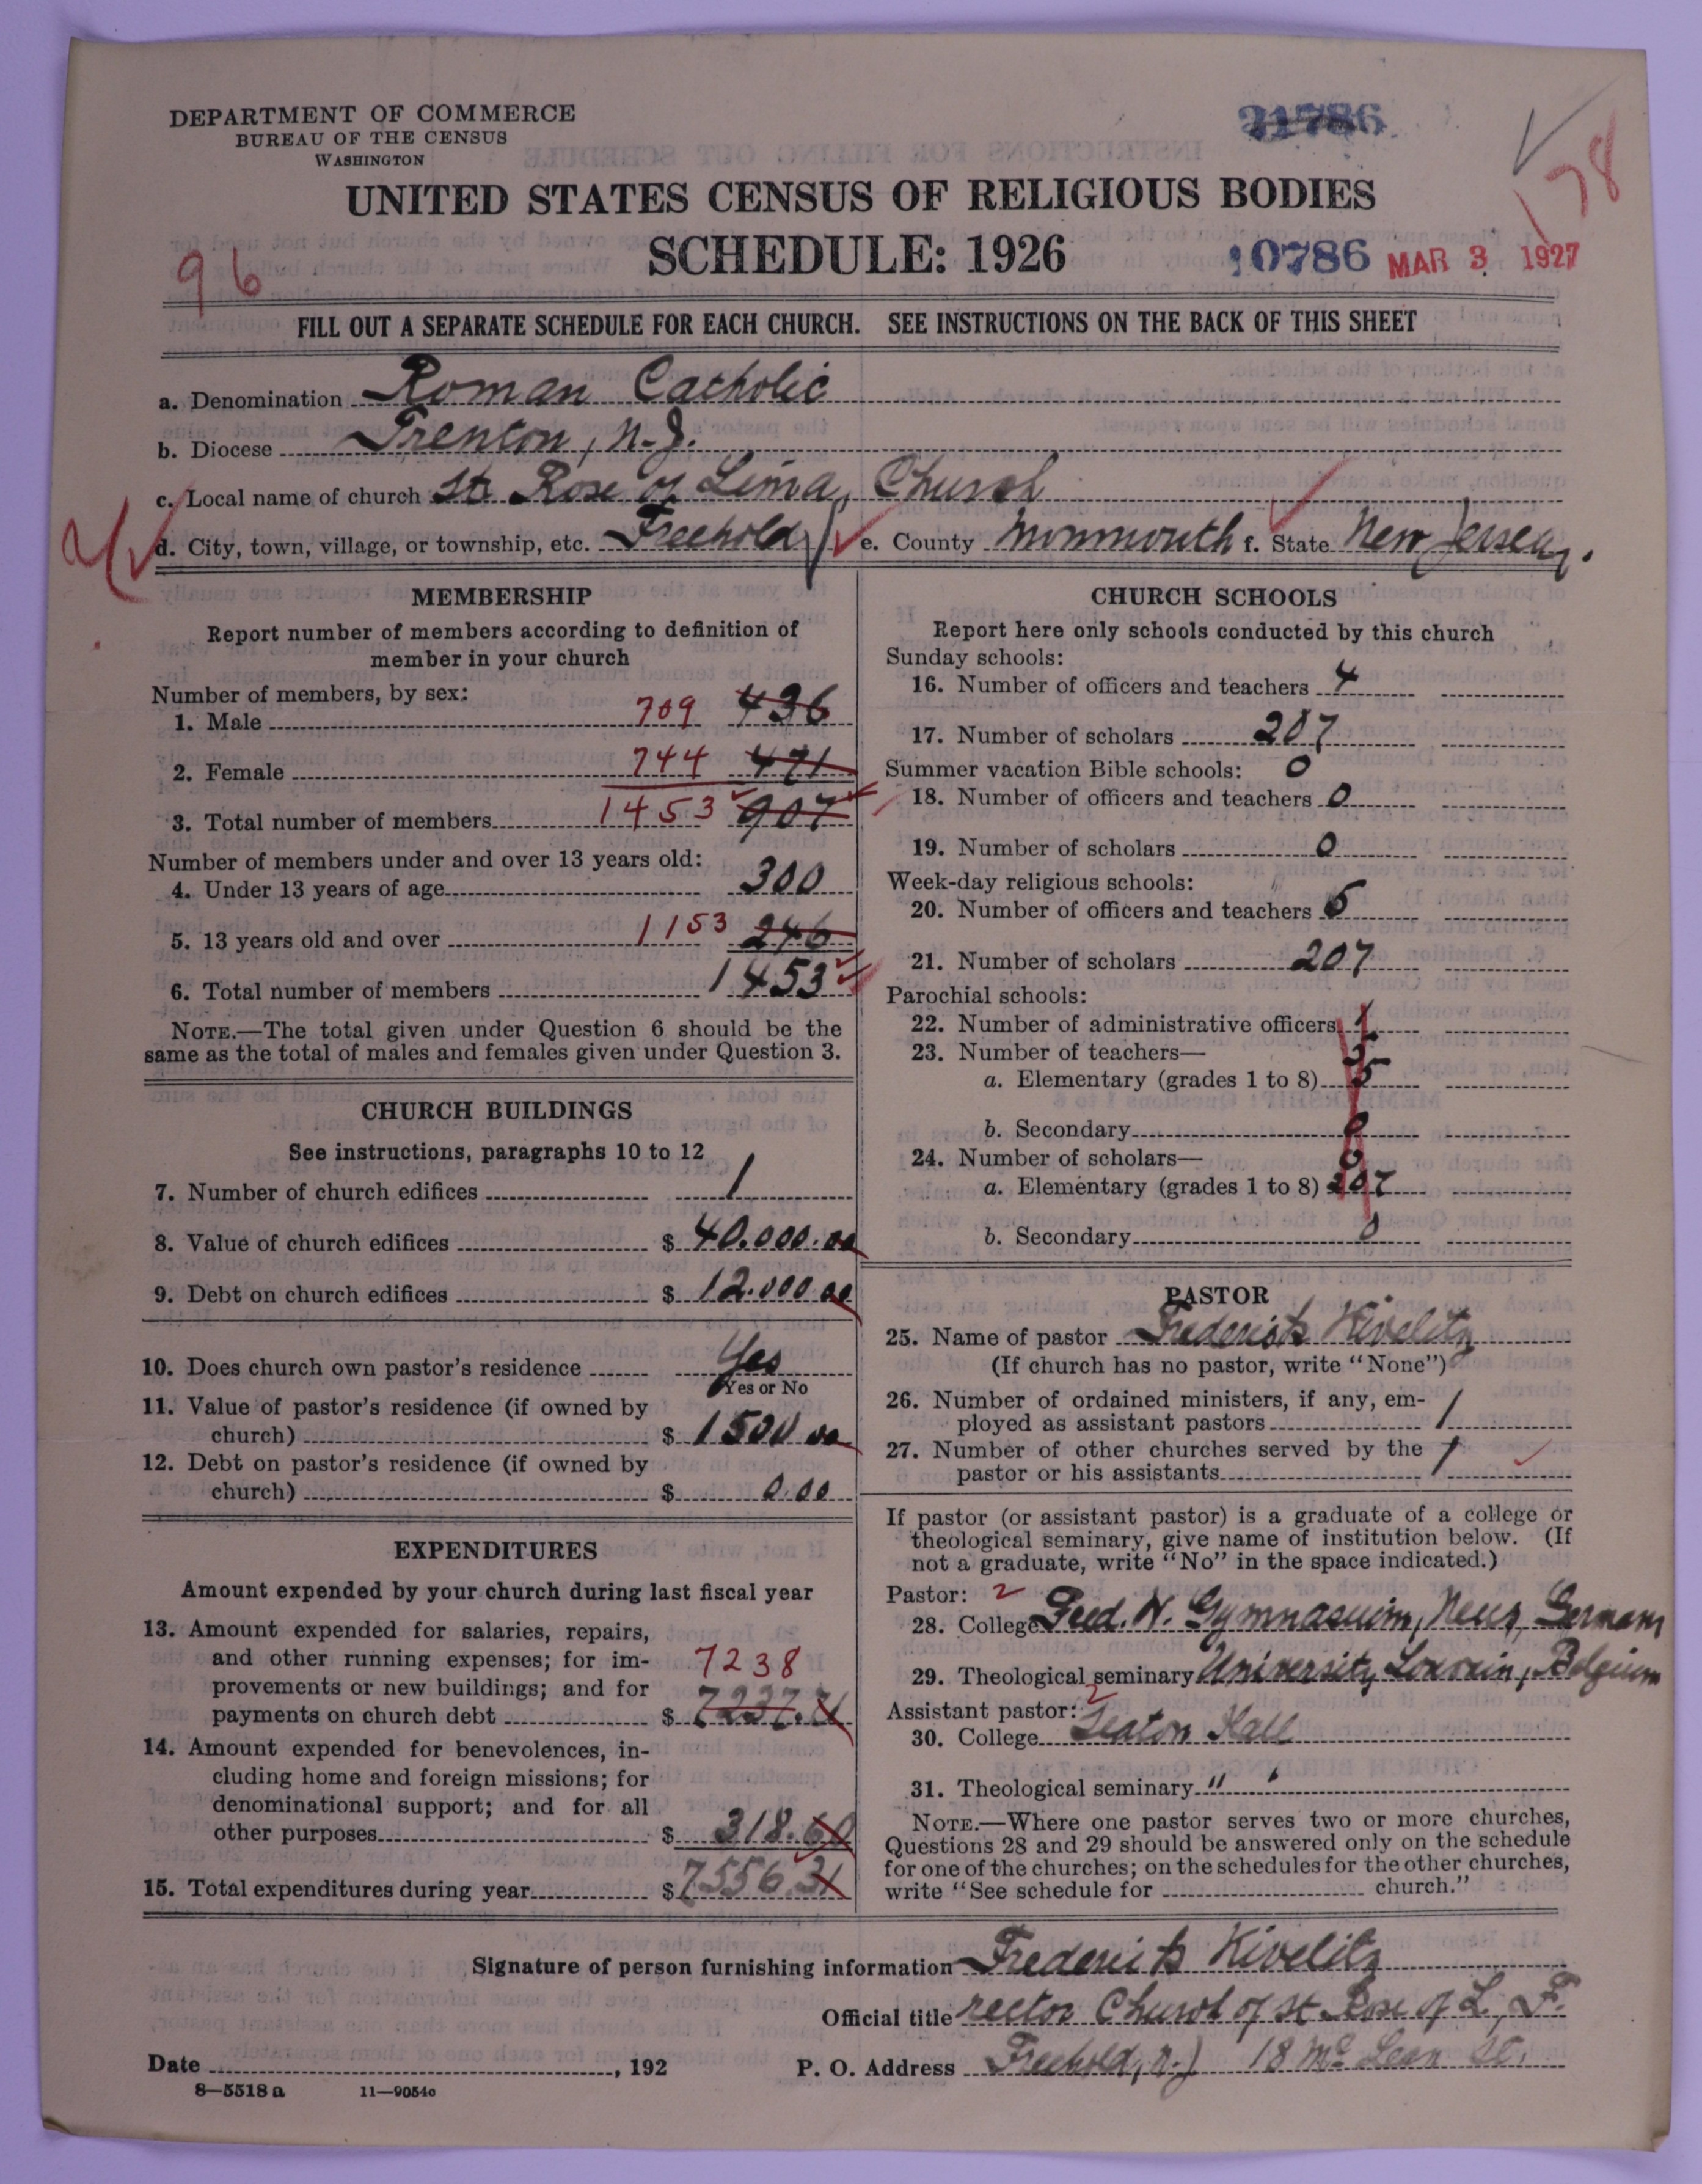 DEPARTMENT OF COMMERCE
BUREAU OF THE CENSUS
WASHINGTON
21786
178
UNITED STATES CENSUS OF RELIGIOUS BODIES
SCHEDULE: 1926
96
10786 MAR 3 1927
FILL OUT A SEPARATE SCHEDULE FOR EACH CHURCH. SEE INSTRUCTIONS ON THE BACK OF THIS SHEET
a. Denomination Roman Catholic
b. Diocese Trenton, N.J.
c. Local name of church St Rose of Lima, Church
d. City, town, village, or township, etc. Freehold e. County Monmouth f. State New Jersey.
MEMBERSHIP
Report number of members according to definition of
member in your church
Number of members, by sex:
1. Male 709 436
2. Female 744 471
3. Total number of members 1453 907
Number of members under and over 13 years old:
4. Under 13 years of age 300
5. 13 years old and over 1153 246
6. Total number of members 1453
NOTE.—The total given under Question 6 should be the
same as the total of males and females given under Question 3.
CHURCH BUILDINGS
See instructions, paragraphs 10 to 12
7. Number of church edifices 1
8. Value of church edifices $ 40.000.00
9. Debt on church edifices $ 12.000 00
10. Does church own pastor's residence Yes
Yes or No
11. Value of pastor's residence (if owned by
church) $ 1500 00
12. Debt on pastor's residence (if owned by
church) $ 0.00
EXPENDITURES
Amount expended by your church during last fiscal year
13. Amount expended for salaries, repairs,
and other running expenses; for im-
7238
provements or new buildings; and for
payments on church debt $ 7237.71
14. Amount expended for benevolences, in-
cluding home and foreign missions; for
denominational support; and for all
other purposes $ 318.60
15. Total expenditures during year $ 7556 31
CHURCH SCHOOLS
Report here only schools conducted by this church
Sunday schools:
16. Number of officers and teachers 4
17. Number of scholars 207
Summer vacation Bible schools: 0
18. Number of officers and teachers 0
19. Number of scholars 0
Week-day religious schools:
20. Number of officers and teachers 5
21. Number of scholars 207
Parochial schools:
22. Number of administrative officers 1
23. Number of teachers— 5
a. Elementary (grades 1 to 8) 5
b. Secondary 0
24. Number of scholars— 0
a. Elementary (grades 1 to 8) 207
b. Secondary 0
PASTOR
25. Name of pastor Frederick Kivelitz
(If church has no pastor, write "None")
26. Number of ordained ministers, if any, em-
ployed as assistant pastors 1
27. Number of other churches served by the
pastor or his assistants 1
If pastor (or assistant pastor) is a graduate of a college or
theological seminary, give name of institution below. (If
not a graduate, write "No" in the space indicated.)
Pastor: 2
28. College Fred. W. Gymnasuim, Neus, Germany
29. Theological seminary University Louvain, Belgium
Assistant pastor: 2
30. College Seaton Hall
31. Theological seminary " "
NOTE.—Where one pastor serves two or more churches,
Questions 28 and 29 should be answered only on the schedule
for one of the churches; on the schedules for the other churches,
write "See schedule for church."
Signature of person furnishing information Frederick Kivelitz
Official title rector Church of St Rose of L, F.
Date , 192 P. O. Address Freehold, N.J 18 Mc Lean St.
8—5518 a 11—9054c